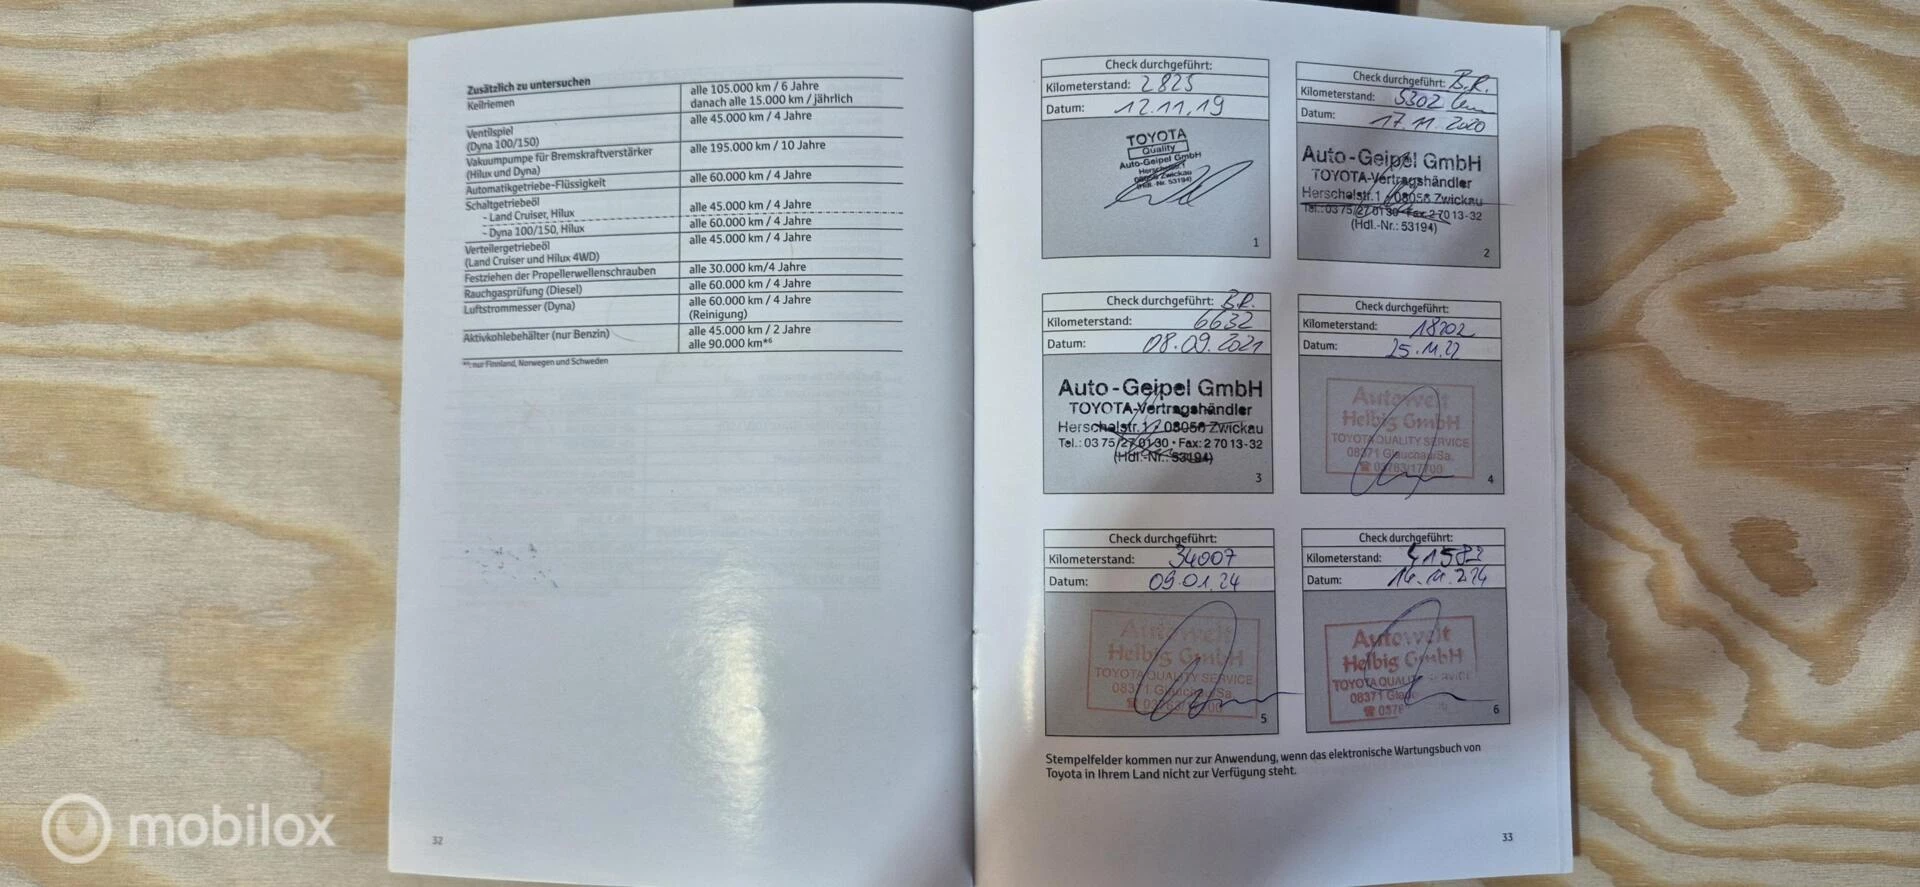 Zusätzlich zu untersuchen
Keilriemen
alle 105.000 km / 6 Jahre
danach alle 15.000 km / jährlich
Ventilspiel
(Dyna 100/150)
alle 45.000 km / 4 Jahre
Vakuumpumpe für Bremskraftverstärker
(Hilux und Dyna)
alle 195.000 km / 10 Jahre
Automatikgetriebe-Flüssigkeit
alle 60.000 km / 4 Jahre
Schaltgetriebeöl
- Land Cruiser, Hilux
alle 45.000 km / 4 Jahre
- Dyna 100/150, Hilux
alle 60.000 km / 4 Jahre
Verteilergetriebeöl
(Land Cruiser und Hilux 4WD)
alle 45.000 km / 4 Jahre
Festziehen der Propellerwellenschrauben
alle 30.000 km/4 Jahre
Rauchgasprüfung (Diesel)
alle 60.000 km / 4 Jahre
Luftstrommesser (Dyna)
alle 60.000 km / 4 Jahre
(Reinigung)
Aktivkohlebehälter (nur Benzin)
alle 45.000 km / 2 Jahre
alle 90.000 km*⁶
*⁶: nur Finnland, Norwegen und Schweden
32
Check durchgeführt:
Kilometerstand: 2825
Datum: 12.11.19
TOYOTA
Quality
Auto-Geipel GmbH
08056 Zwickau
(Hdl.-Nr. 53194)
1
Check durchgeführt: B.R.
Kilometerstand: 5302 km
Datum: 17.11.2020
Auto-Geipel GmbH
TOYOTA-Vertragshändler
Herschelstr.1 / 08056 Zwickau
Tel.: 03 75/27 01 30 · Fax: 2 70 13-32
(Hdl.-Nr.: 53194)
2
Check durchgeführt: B.R.
Kilometerstand: 6632
Datum: 08.09.2021
Auto-Geipel GmbH
TOYOTA-Vertragshändler
Herschelstr.1 / 08056 Zwickau
Tel.: 03 75/27 01 30 · Fax: 2 70 13-32
(Hdl.-Nr.: 53194)
3
Check durchgeführt:
Kilometerstand: 18202
Datum: 25.11.22
Autowelt
Helbig GmbH
TOYOTA QUALITY SERVICE
08371 Glauchau/Sa.
☎ 03763/17700
4
Check durchgeführt:
Kilometerstand: 34007
Datum: 09.01.24
Autowelt
Helbig GmbH
TOYOTA QUALITY SERVICE
08371 Glauchau/Sa.
☎ 03763/17700
5
Check durchgeführt:
Kilometerstand: 41582
Datum:
Autowelt
Helbig GmbH
TOYOTA QUALITY SERVICE
08371
☎ 0376
6
Stempelfelder kommen nur zur Anwendung, wenn das elektronische Wartungsbuch von
Toyota in Ihrem Land nicht zur Verfügung steht.
33
mobilox